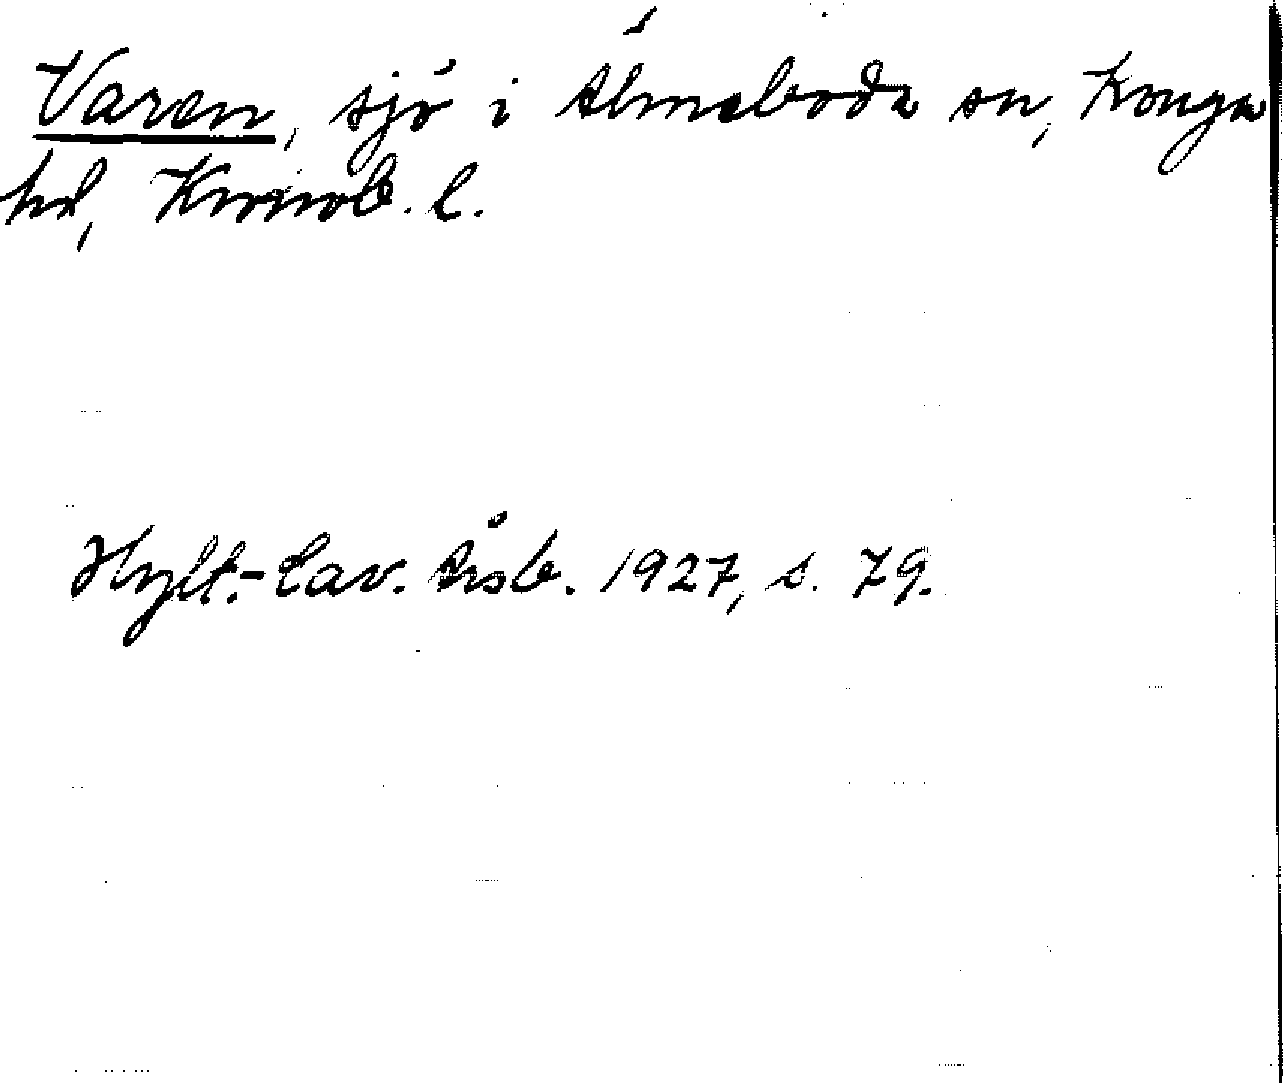 Varen, sjö i Älmeboda sn, Konga
hd, Kronob. l.
Hylt.-Cav. Årsb. 1927, s. 79.